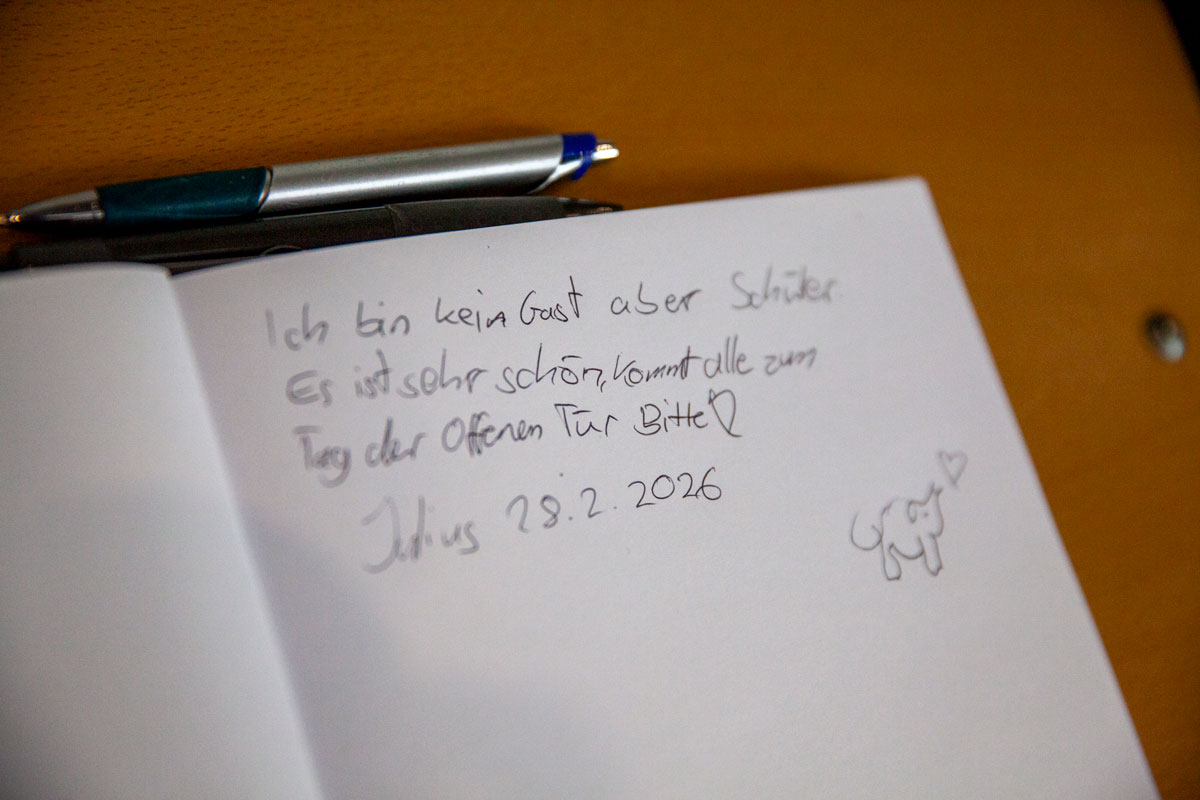 Ich bin kein Gast aber Schüler
Es ist sehr schön, kommt alle zum
Tag der Offenen Tür Bitte♡
Julius 28.2.2026